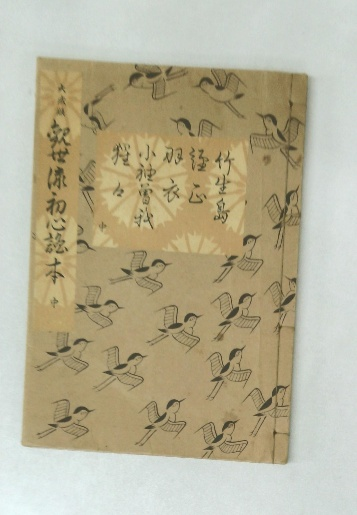 大成版 観世流初心謡本 中
竹生島
経正
羽衣
小袖曽我
猩々
中